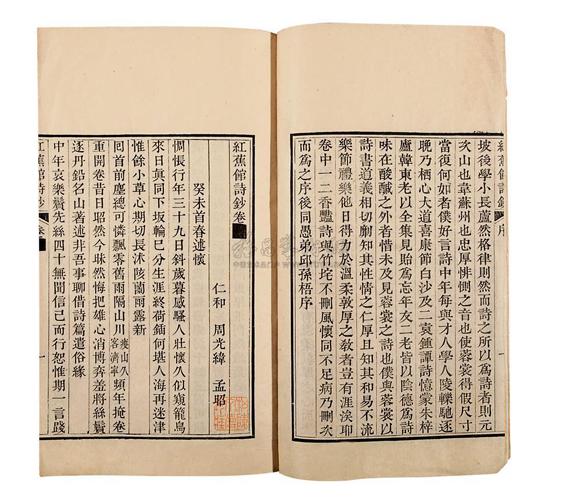 紅蕉館詩鈔 序
坡後學小長蘆然格律則然而詩之所以為詩者則元
次山也韋蘇州也忠厚悱惻之音也使蓉裳假尺寸
當復何如者僕好言詩中年每與才人學人陵轢馳逐
晚乃栖心大道喜康節白沙及二袁鍾譚詩憶蒙朱梓
廬韓東老以全集見貽為忘年友二老皆以陰德為詩
味在酸醎之外者惜未及見蓉裳之詩也僕與蓉裳以
詩書道義相切劘知其性情之仁厚且知其和易不流
樂節禮樂他日得力於溫柔敦厚之敎者豈有涯涘耶
卷中一二香豔詩與竹垞不刪風懷同不足病乃刪次
而為之序後同愚弟邱孫梧序
紅蕉館詩鈔卷
仁和 周光緯 孟昭
癸未首春述懷
惆悵行年三十九今日斜歲暮感騷人壯懷久似窺籠鳥
來日眞同下坂輪已分生涯終荷鍤何堪人海再迷津
惟餘小草心期切長沭陔蘭雨露新
回首前塵總可憐飄零舊雨隔山川頻年掩卷
重開卷昔日昭然今昧然悔把雄心消博弈差將絲鬢
逐丹鉛名山著述非吾事聊借詩篇遣俗緣
中年哀樂鬢先絲四十無聞信已而行恕惟期一言踐
紅蕉館詩鈔 卷一